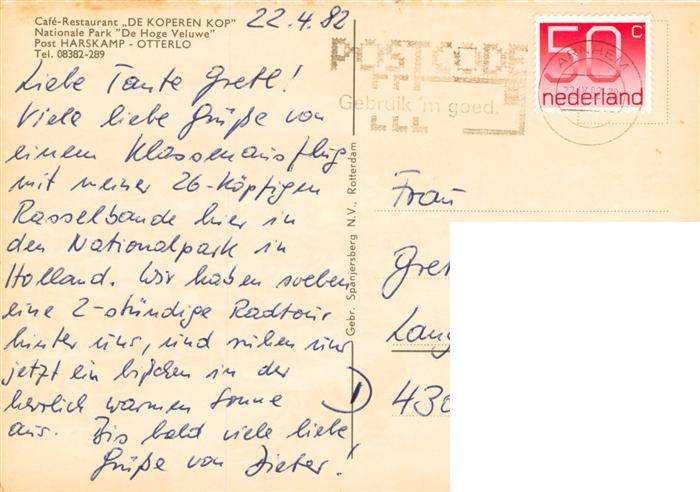 Café-Restaurant „DE KOPEREN KOP"
Nationale Park "De Hoge Veluwe"
Post HARSKAMP - OTTERLO
Tel. 08382-289
22.4.82
Liebe Tante Gretl!
Viele liebe Grüße von
einem Klassenausflug
mit meiner 26-Köpfigen
Rasselbande hier in
den Nationalpark in
Holland. Wir haben soeben
eine 2-stündige Radtour
hinter uns, und ruhen uns
jetzt ein bißchen in der
herrlich warmen Sonne
aus. Bis bald viele liebe
Grüße von Dieter!
Gebr. Spanjersberg N.V., Rotterdam
POSTCODE
Gebruik 'm goed.
ARNHEM
50 c
nederland
Frau
Gret
Lang
430
1